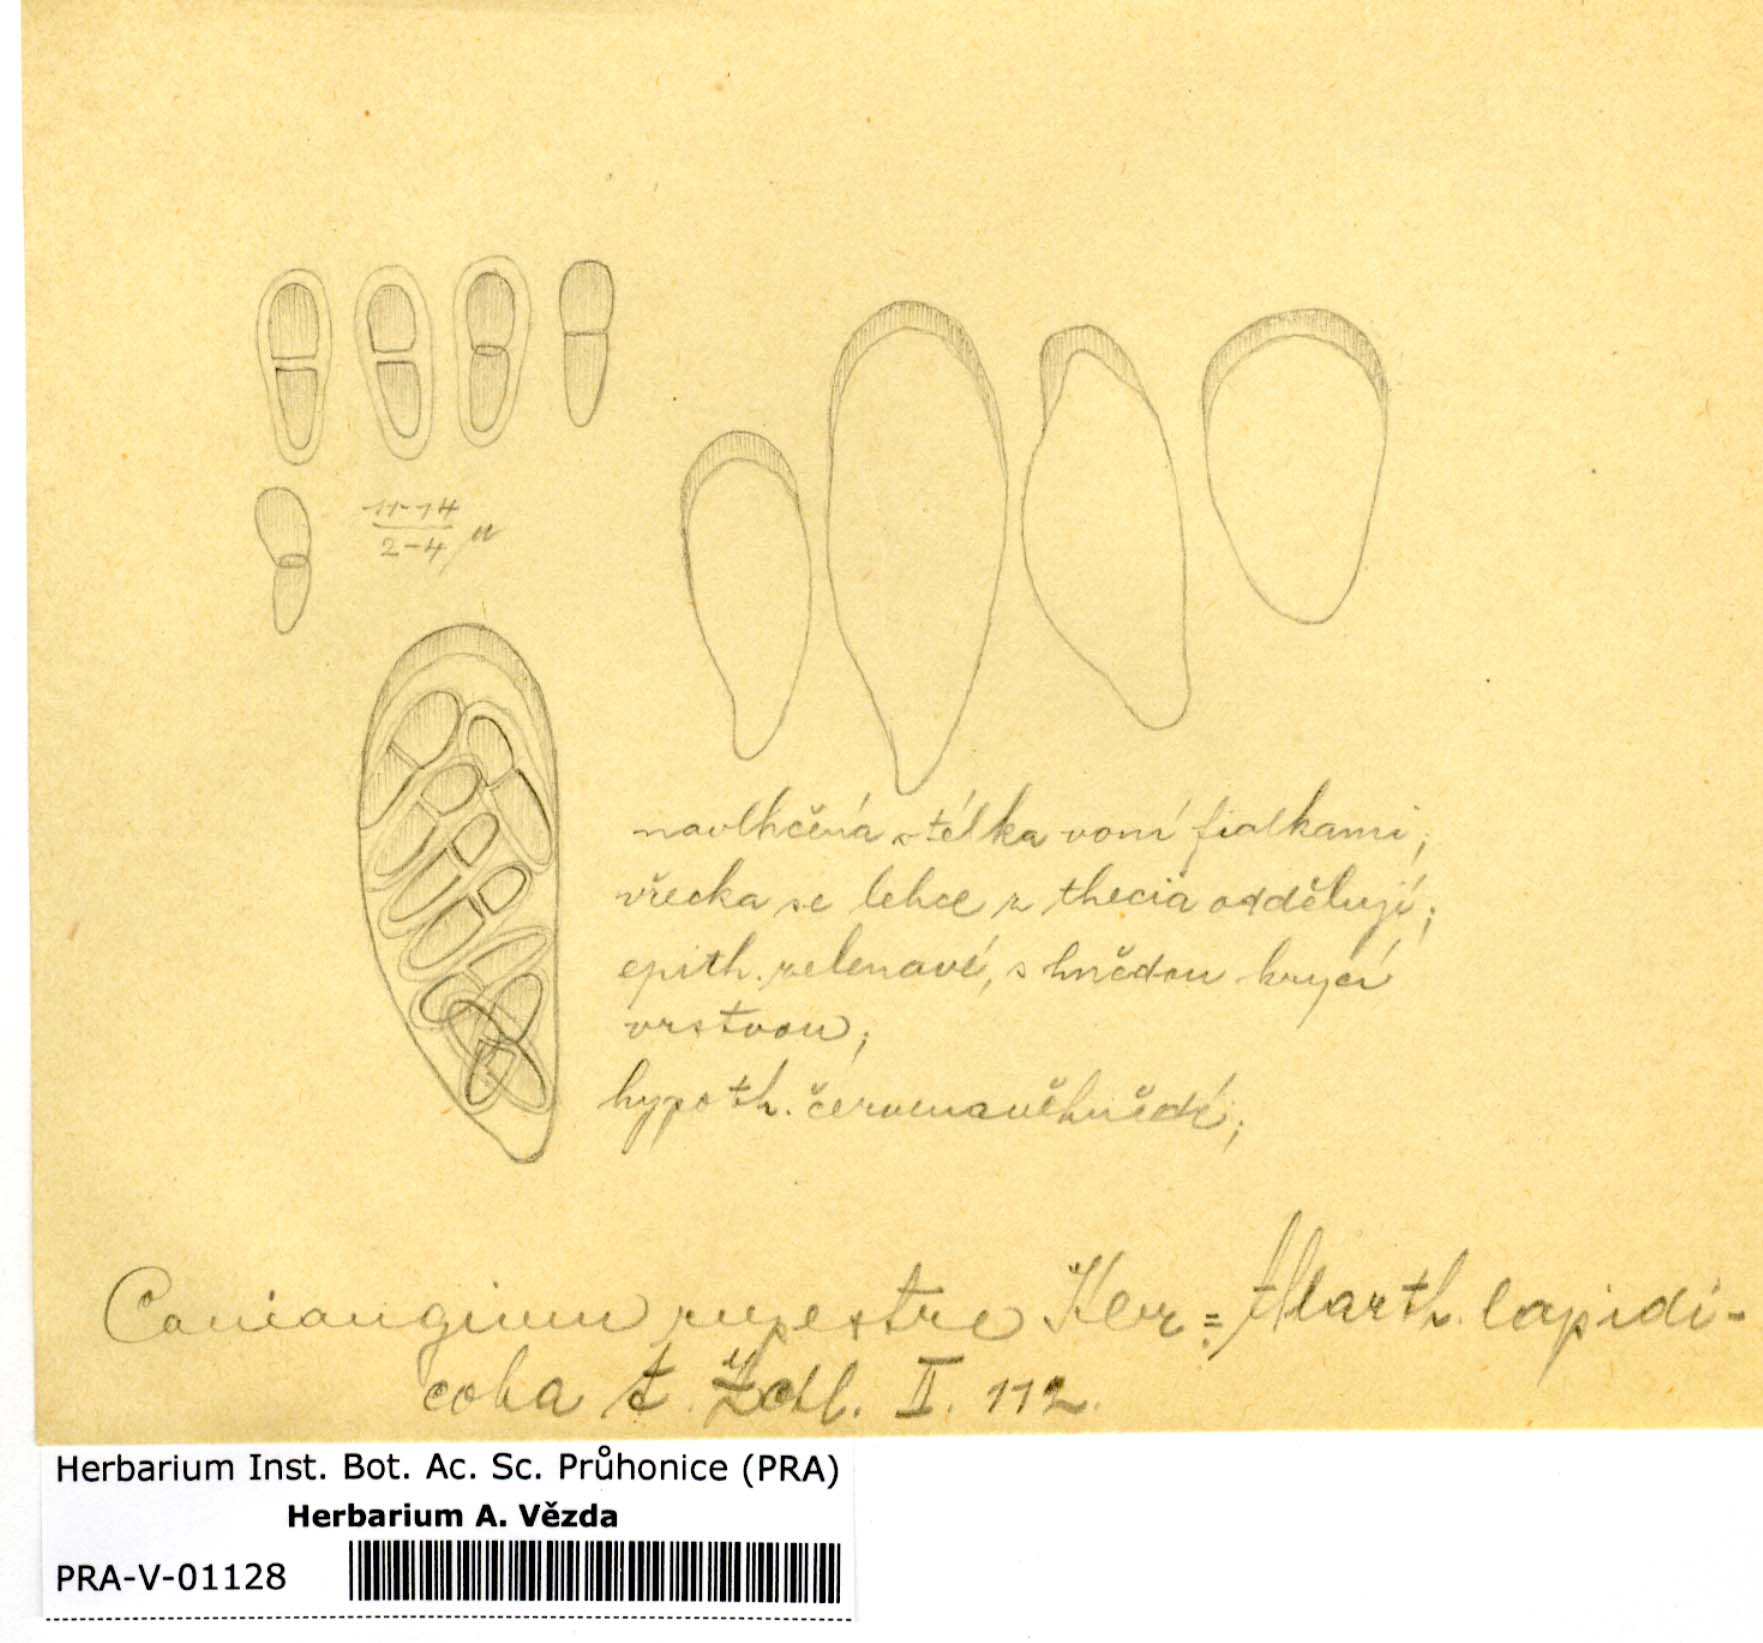 11-14
2-4 μ
navlhčená stélka voní fialkami;
vřecka se lehce z thecia oddělují;
epith. zelenavé, s hnědou krycí
vrstvou;
hypoth. červenavěhnědé;
Coniangium rupestre Kbr = Arth. lapidi-
cola t. Zctl. II. 112.
Herbarium Inst. Bot. Ac. Sc. Průhonice (PRA)
Herbarium A. Vězda
PRA-V-01128